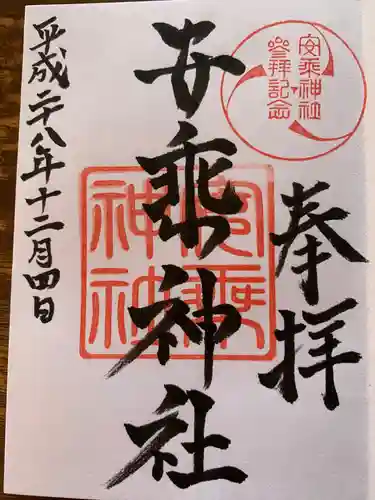 奉拝
安乗神社
平成二十八年十二月四日
安乗神社
参拝記念
安乗
神社